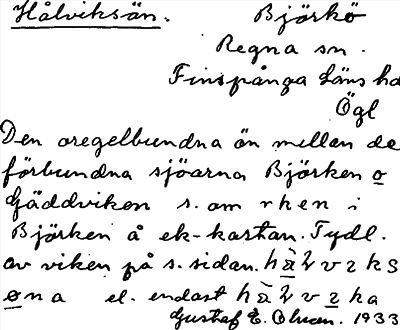 Hålviksän. Björkö
Regna sn.
Finspånga läns hd
Ögl
Den oregelbundna ön mellan de
förbundna sjöarna Björken o
Gäddviken s. om rken i
Björken å ek-kartan. Tydl.
av viken på s. sidan. hàɫvzks
øna el. endast hàɫvzka
Gustaf E. Olsson. 1933